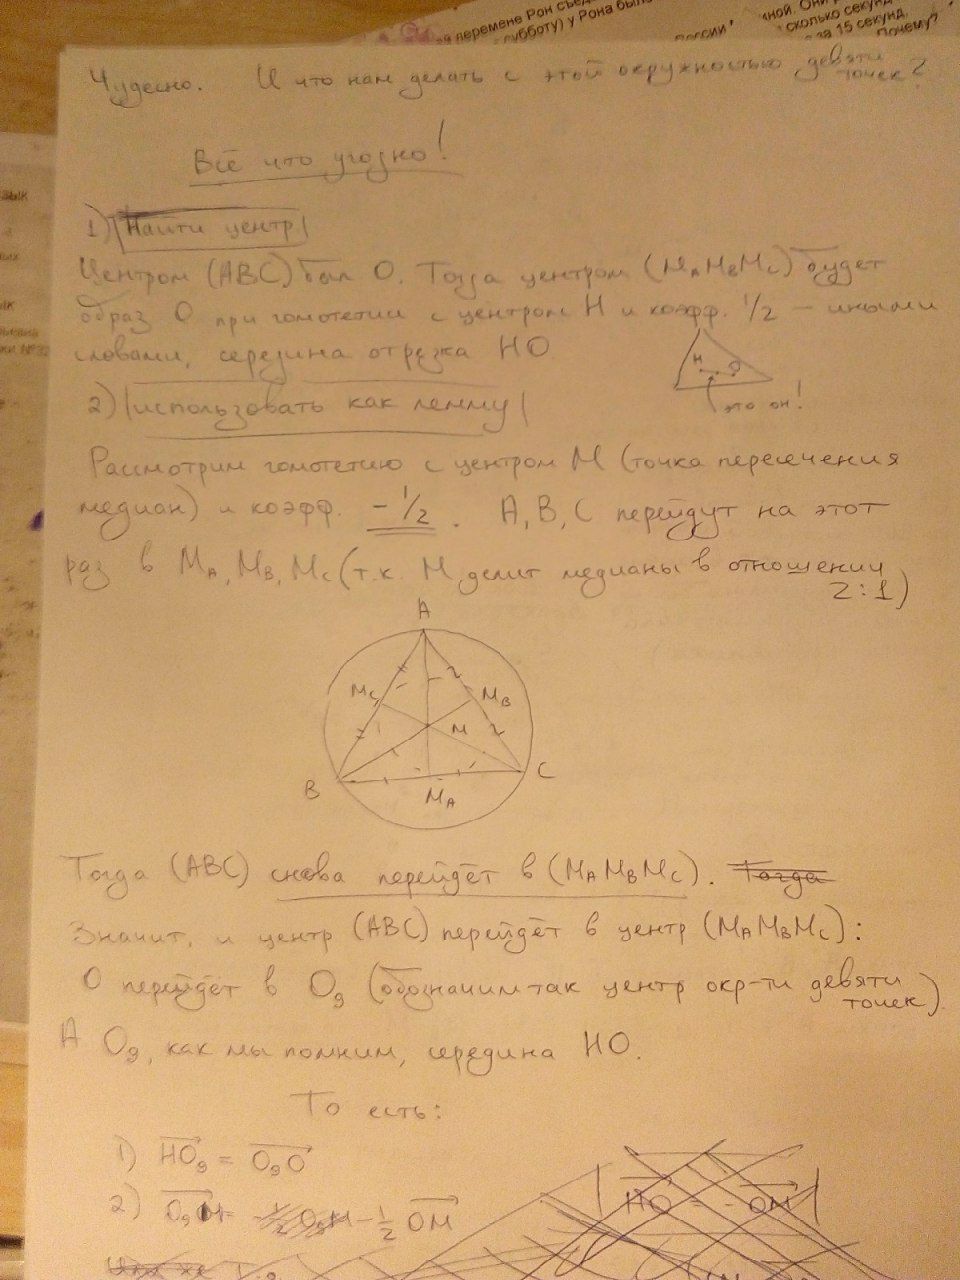 перемене Рон съед
субботу) у Рона было
России"
иной. Они
сколько секунд
за 15 секунд.
Почему?
Чудесно. И что нам делать с этой окружностью девяти
точек?
Всё что угодно!
1) Найти центр
Центром (ABC) был O. Тогда центром (M_A M_B M_C) будет
образ O при гомотетии с центром H и коэфф. 1/2 – иными
словами, середина отрезка HO.
H O
это он!
2) использовать как лемму
Рассмотрим гомотетию с центром M (точка пересечения
медиан) и коэфф. -1/2. A, B, C перейдут на этот
раз в M_A, M_B, M_C (т.к. M делит медианы в отношении
2:1)
A
M_C M_B
M
B C
M_A
Тогда (ABC) снова перейдёт в (M_A M_B M_C). Тогда
Значит, и центр (ABC) перейдёт в центр (M_A M_B M_C):
O перейдёт в O_9 (обозначим так центр окр-ти девяти
точек).
А O_9, как мы помним, середина HO.
То есть:
1) HO_9 = O_9O
2) O_9M = -1/2 OM
HO OM